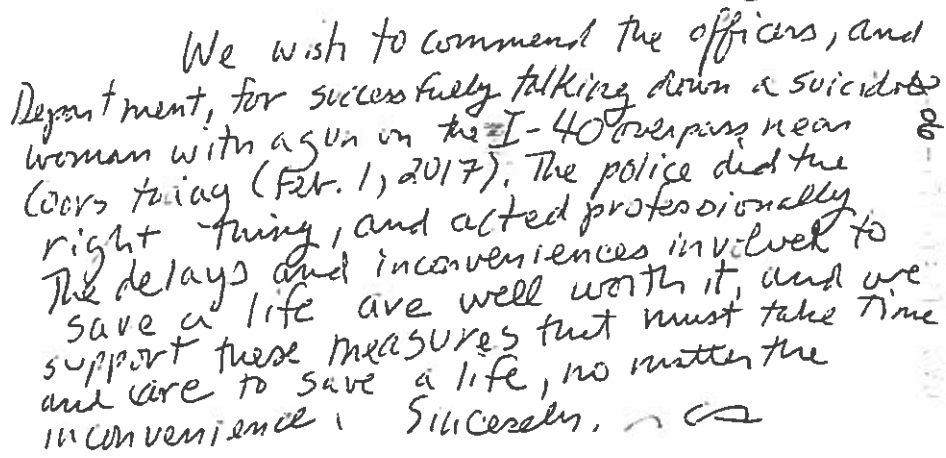 We wish to commend the officers, and
Department, for successfully talking down a suicidal
woman with a gun on the I-40 overpass near
Coors today (Feb. 1, 2017). The police did the
right thing, and acted professionally
The delays and inconveniences involved to
save a life are well worth it, and we
support these measures that must take time
and care to save a life, no matter the
inconvenience. Sincerely,